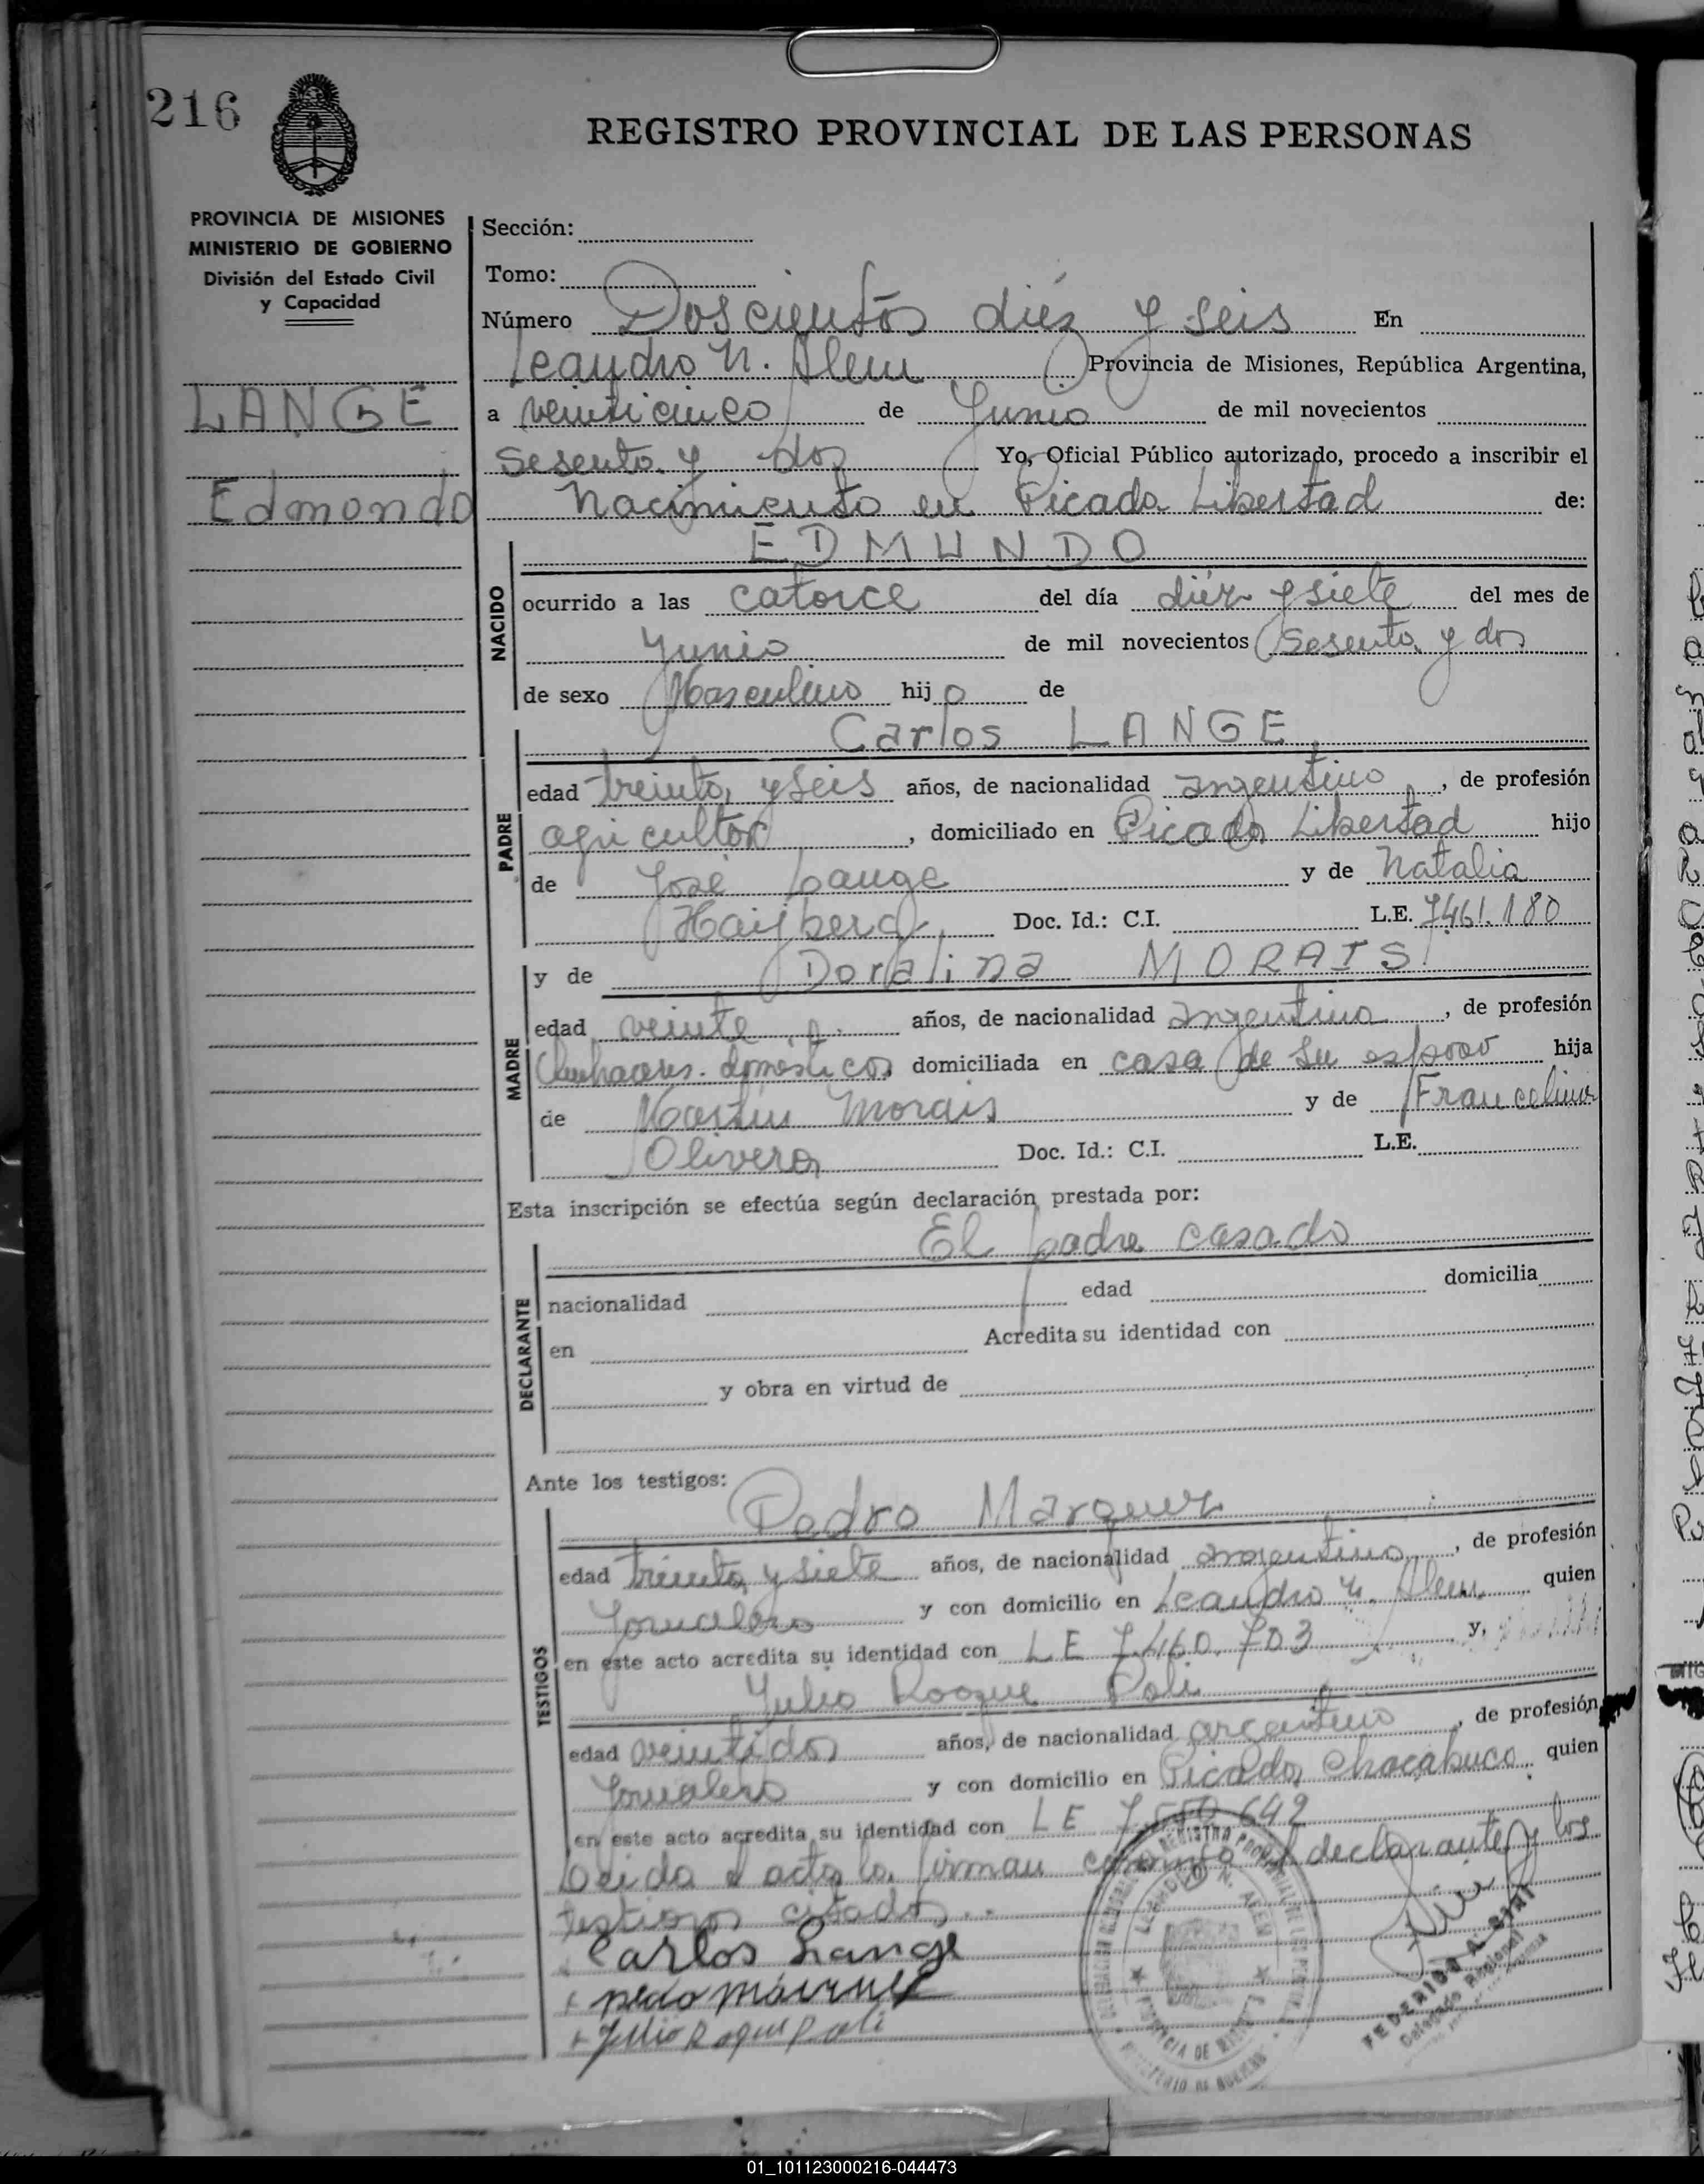 216
REGISTRO PROVINCIAL DE LAS PERSONAS
PROVINCIA DE MISIONES
MINISTERIO DE GOBIERNO
División del Estado Civil
y Capacidad
LANGE
Edmondo
Sección:
Tomo:
Número Doscientos diéz y seis En
Leandro N. Alem Provincia de Misiones, República Argentina,
a veinticinco de Junio de mil novecientos
sesenta y dos Yo, Oficial Público autorizado, procedo a inscribir el
Nacimiento en Picada Libertad de:
EDMUNDO
NACIDO
ocurrido a las catorce del día diéz y siete del mes de
Junio de mil novecientos sesenta y dos
de sexo Masculino hijo de
Carlos LANGE
PADRE
edad treinta y seis años, de nacionalidad argentino, de profesión
agricultor, domiciliado en Picada Libertad hijo
de José Lange y de Natalia
Doc. Id.: C.I. L.E. 7461.180
MADRE
y de Doralina MORAIS
edad veinte años, de nacionalidad argentina, de profesión
Quehaceres domésticos domiciliada en casa de su esposo hija
de Martin Morais y de Francelina
Olivera Doc. Id.: C.I. L.E.
Esta inscripción se efectúa según declaración prestada por:
El padre casado
DECLARANTE
nacionalidad edad domicilia
en Acredita su identidad con
y obra en virtud de
Ante los testigos:
Pedro Marquez
TESTIGOS
edad treinta y siete años, de nacionalidad argentino, de profesión
Jornalero y con domicilio en Leandro N. Alem quien
en este acto acredita su identidad con LE 7.460.703 y,
Julio Rooque Poli
edad veintidos años, de nacionalidad argentino, de profesión
Jornalero y con domicilio en Picada Chacabuco quien
en este acto acredita su identidad con LE 7.550.642
Leida el acta la firman conmigo el declarante y los
testigos citados..
Carlos Lange
Julio Roque Poli
LEANDRO N. ALEM
PROVINCIA DE MISIONES
FEDERICO A.
Delegado Regional
01_101123000216-044473